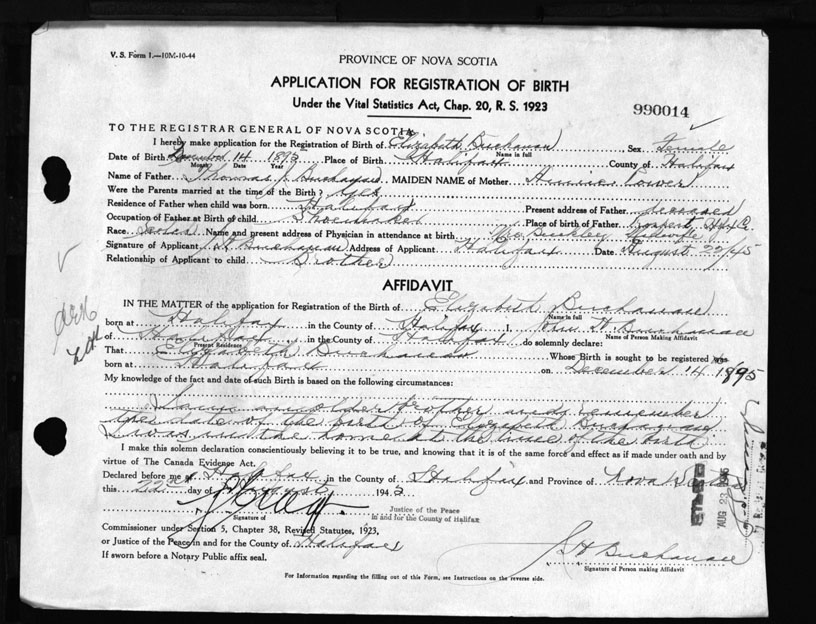 V. S. Form 1.—10M-10-44
PROVINCE OF NOVA SCOTIA
APPLICATION FOR REGISTRATION OF BIRTH
Under the Vital Statistics Act, Chap. 20, R. S. 1923
990014
TO THE REGISTRAR GENERAL OF NOVA SCOTIA
I hereby make application for the Registration of Birth of Elizabeth Buchanan Sex Female
Name in full
Date of Birth December 14 1895 Place of Birth Halifax County of Halifax
Month Date Year
Name of Father Thomas J. Buchanan MAIDEN NAME of Mother
Were the Parents married at the time of the Birth? Yes
Residence of Father when child was born Halifax Present address of Father deceased
Occupation of Father at Birth of child Shoemaker Place of birth of Father Prospect
Race Name and present address of Physician in attendance at birth Mrs Buckley
Signature of Applicant Buchanan Address of Applicant Halifax Date August 22/45
Relationship of Applicant to child Brother
AFFIDAVIT
IN THE MATTER of the application for Registration of the Birth of Elizabeth Buchanan
Name in full
born at Halifax in the County of Halifax I, John H. Buchanan
Name of Person Making Affidavit
of Halifax in the County of Halifax do solemnly declare:
Present Residence
That Elizabeth Buchanan Whose Birth is sought to be registered was
born at Halifax on December 14 1895
My knowledge of the fact and date of such Birth is based on the following circumstances:
I am an older brother and remember
the date of the birth of Elizabeth Buchanan
I was in the home at the time of the birth
I make this solemn declaration conscientiously believing it to be true, and knowing that it is of the same force and effect as if made under oath and by
virtue of The Canada Evidence Act.
Declared before me at Halifax in the County of Halifax and Province of Nova Scotia
this 22nd day of August 1945
Justice of the Peace
in and for the County of Halifax
Signature of
Commissioner under Section 5, Chapter 38, Revised Statutes, 1923,
or Justice of the Peace in and for the County of Halifax
If sworn before a Notary Public affix seal.
J H Buchanan
Signature of Person making Affidavit
For Information regarding the filling out of this Form, see Instructions on the reverse side.
AUG 23 1945